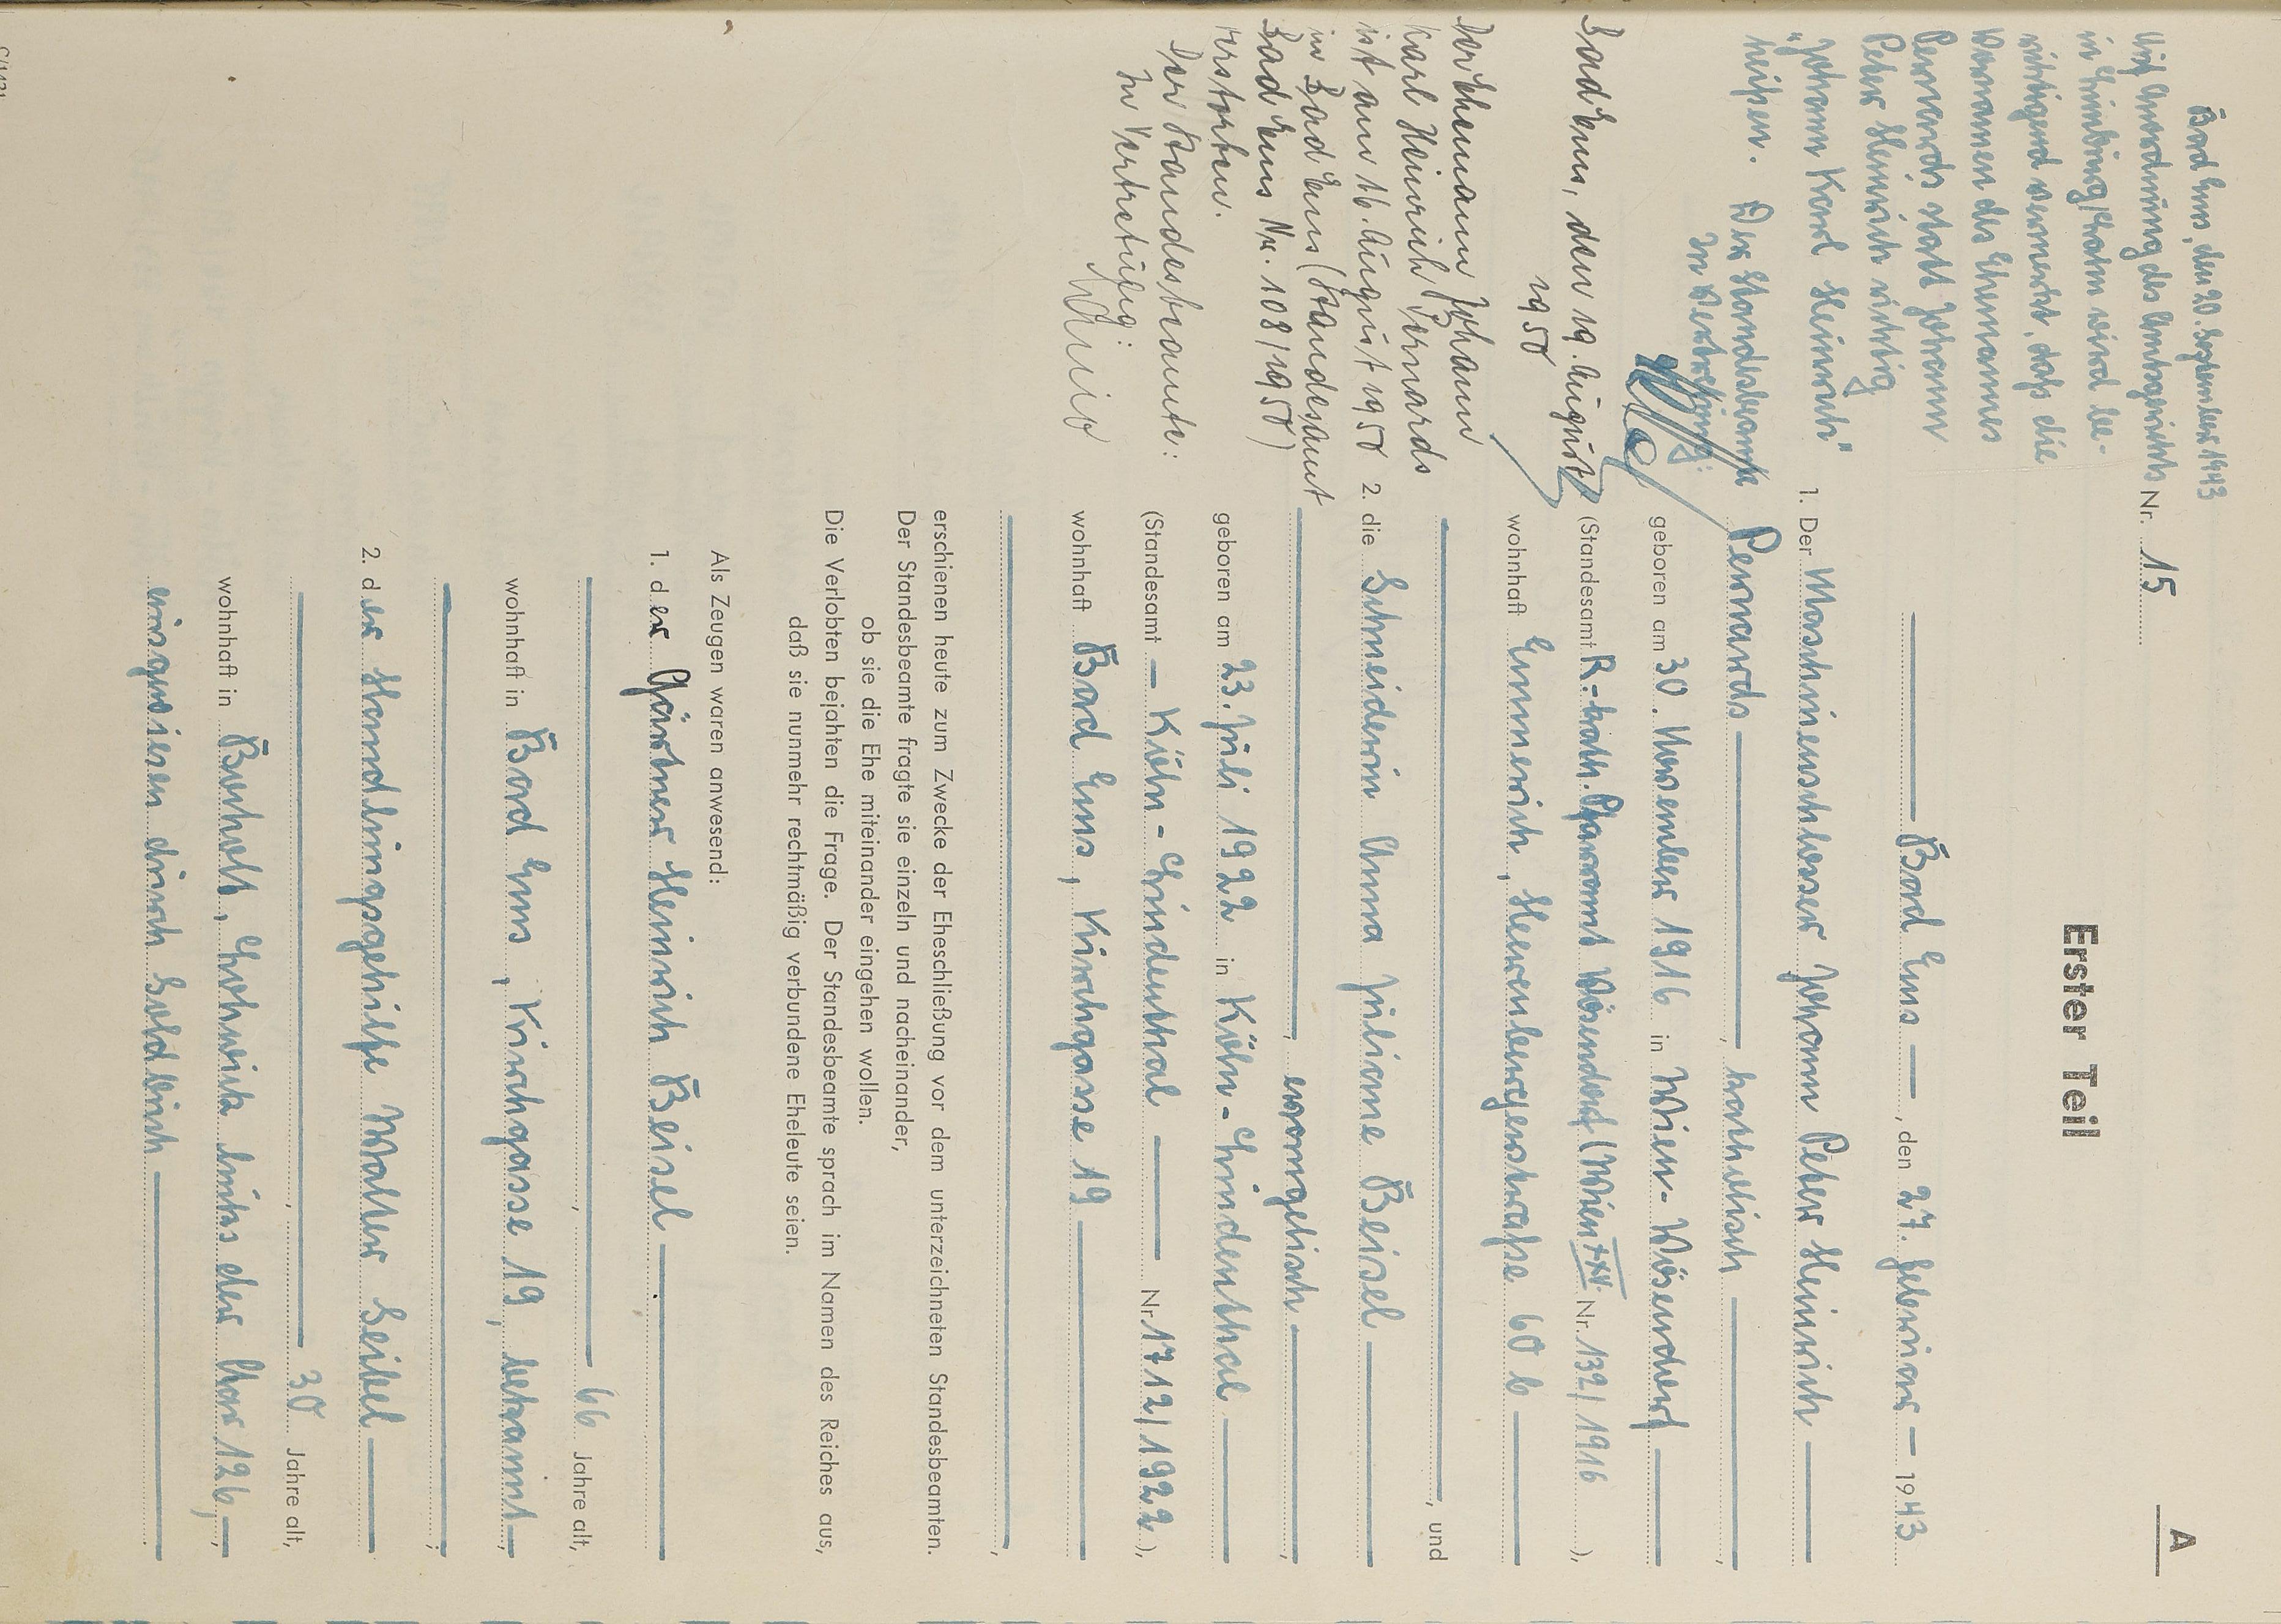 Erster Teil
A
Nr. 15
Bad Ems, den 27. Februar 1943
1. Der Maschinenschlosser Johann Peter Heinrich
Pernards, katholisch,
geboren am 30. November 1916 in Wien-Vösendorf
(Standesamt R.-kath. Pfarramt Vösendorf (Wien XXV. Nr. 132/1916),
wohnhaft Emmerich, Heerenbergerstraße 60 b
, und
2. die Schneiderin Anna Juliane Beisel
, evangelisch,
geboren am 23. Juli 1922 in Köln-Lindenthal
(Standesamt Köln-Lindenthal Nr. 1712/1922),
wohnhaft Bad Ems, Kirchgasse 19
,
erschienen heute zum Zwecke der Eheschließung vor dem unterzeichneten Standesbeamten.
Der Standesbeamte fragte sie einzeln und nacheinander,
ob sie die Ehe miteinander eingehen wollen.
Die Verlobten bejahten die Frage. Der Standesbeamte sprach im Namen des Reiches aus,
daß sie nunmehr rechtmäßig verbundene Eheleute seien.
Als Zeugen waren anwesend:
1. der Gärtner Heinrich Beisel
, 66 Jahre alt,
wohnhaft in Bad Ems, Kirchgasse 19, bekannt,
;
2. der Handlungsgehilfe Walter Seibel
, 30 Jahre alt,
wohnhaft in Bocholt, links der Aa 126,
ausgewiesen durch Soldbuch
Bad Ems, den 20. September 1943
Auf Anordnung des Amtsgerichts
in Limburg/Lahn wird be-
richtigend vermerkt, daß die
Vornamen des Ehemannes
Pernards statt Johann
Peter Heinrich richtig
"Johann Karl Heinrich"
heißen. Der Standesbeamte
In Vertretung:
Bad Ems, den 19. August
1950
Der Ehemann Johann
Karl Heinrich Pernards
ist am 16. August 1950
in Bad Ems (Standesamt
Bad Ems Nr. 108/1950)
verstorben.
Der Standesbeamte:
In Vertretung: